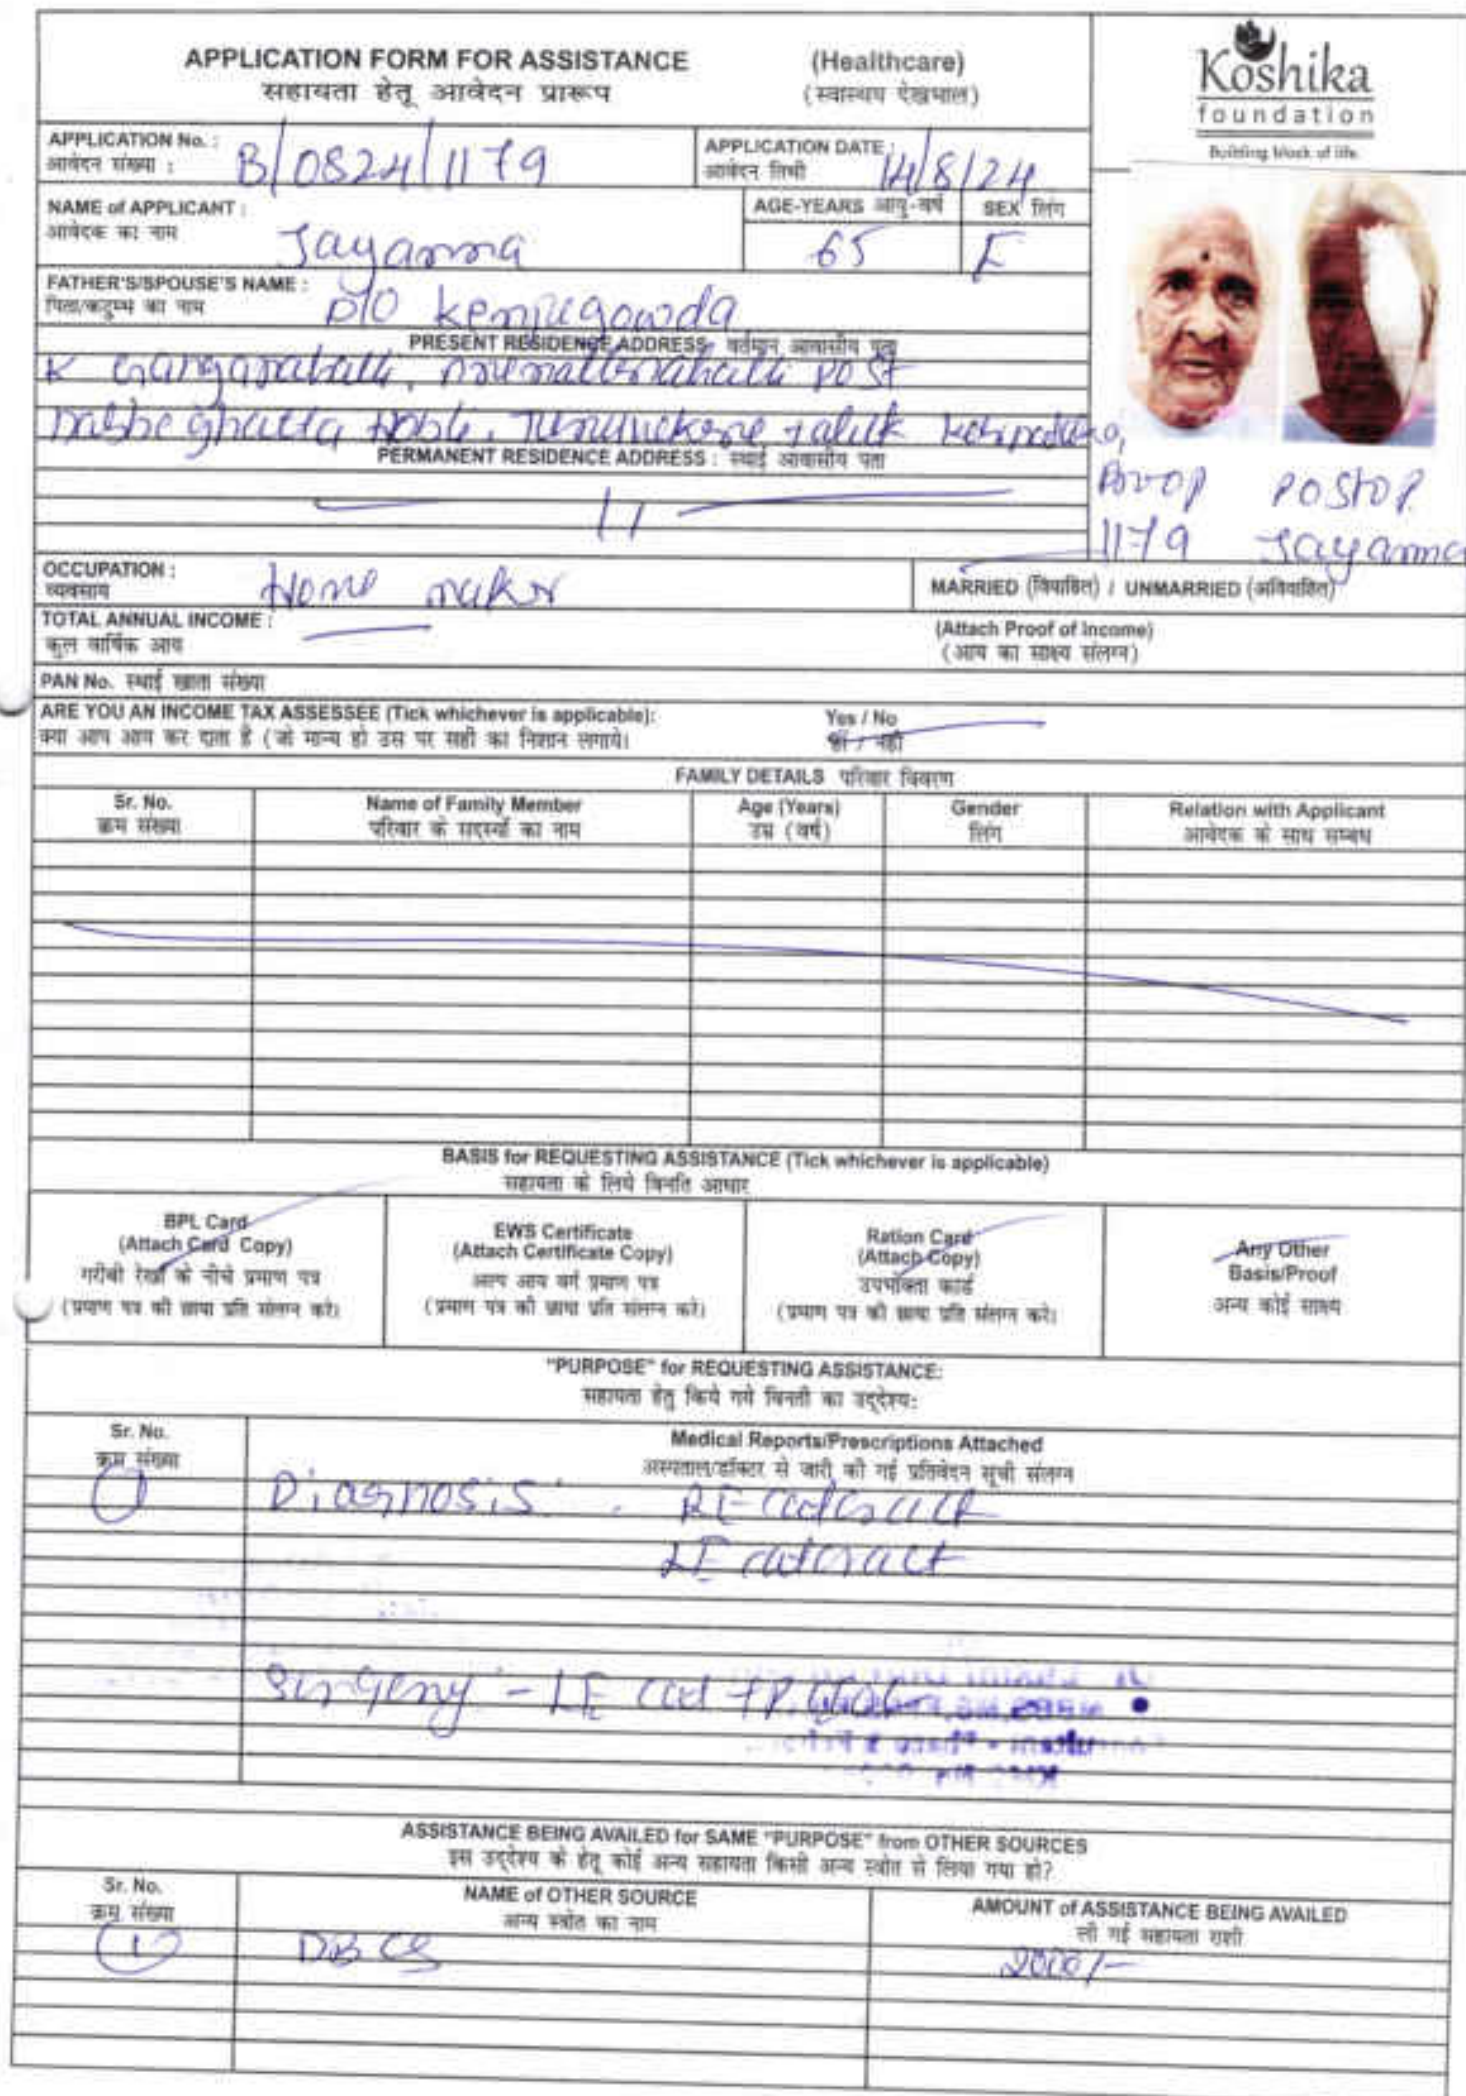 APPLICATION FORM FOR ASSISTANCE (Healthcare)
सहायता हेतू आवेदन प्रारूप (स्वास्थय देखभाल)
Koshika
foundation
Building block of life.
APPLICATION No. : B/0824/1179
आवेदन संख्या :
APPLICATION DATE : 14/8/24
आवेदन तिथी
NAME of APPLICANT : Jayamma
आवेदक का नाम
AGE-YEARS आयु-वर्ष 65
SEX लिंग F
FATHER'S/SPOUSE'S NAME : D/O Kempegowda
पिता/कटुम्ब का नाम
PRESENT RESIDENCE ADDRESS : वर्तमान आवासीय पता
K post
Hobli, taluk
PERMANENT RESIDENCE ADDRESS : स्थाई आवासीय पता
—— 11 ——
Postop
1179 Jayamma
OCCUPATION : Home maker
व्यवसाय
MARRIED (विवाहित) / UNMARRIED (अविवाहित)
TOTAL ANNUAL INCOME :
कुल वार्षिक आय
(Attach Proof of Income)
(आय का साक्ष्य संलग्न)
PAN No. स्थाई खाता संख्या
ARE YOU AN INCOME TAX ASSESSEE (Tick whichever is applicable): Yes / No
क्या आप आय कर दाता है (जो मान्य हो उस पर सही का निशान लगाये। हाँ / नही
FAMILY DETAILS परिवार विवरण
Sr. No. Name of Family Member Age (Years) Gender Relation with Applicant
क्रम संख्या परिवार के सदस्यों का नाम उम्र (वर्ष) लिंग आवेदक के साथ सम्बध
BASIS for REQUESTING ASSISTANCE (Tick whichever is applicable)
सहायता के लिये विनति आधार
BPL Card
(Attach Card Copy)
गरीबी रेखा के नीचे प्रमाण पत्र
(प्रमाण पत्र की छाया प्रति संलग्न करे)
EWS Certificate
(Attach Certificate Copy)
अल्प आय वर्ग प्रमाण पत्र
(प्रमाण पत्र की छाया प्रति संलग्न करे)
Ration Card
(Attach Copy)
उपभोक्ता कार्ड
(प्रमाण पत्र की छाया प्रति संलग्न करे)
Any Other
Basis/Proof
अन्य कोई साक्ष्य
"PURPOSE" for REQUESTING ASSISTANCE:
सहायता हेतु किये गये विनती का उद्देश्य:
Sr. No. Medical Reports/Prescriptions Attached
क्रम संख्या अस्पताल/डॉक्टर से जारी की गई प्रतिवेदन सूची संलग्न
1 Diagnosis: RE cataract
LE cataract
Surgery - LE
ASSISTANCE BEING AVAILED for SAME "PURPOSE" from OTHER SOURCES
इस उद्देश्य के हेतू कोई अन्य सहायता किसी अन्य स्त्रोत से लिया गया हो?
Sr. No. NAME of OTHER SOURCE AMOUNT of ASSISTANCE BEING AVAILED
क्रम संख्या अन्य स्त्रोत का नाम ली गई सहायता राशी
1 DBCS 2000/-